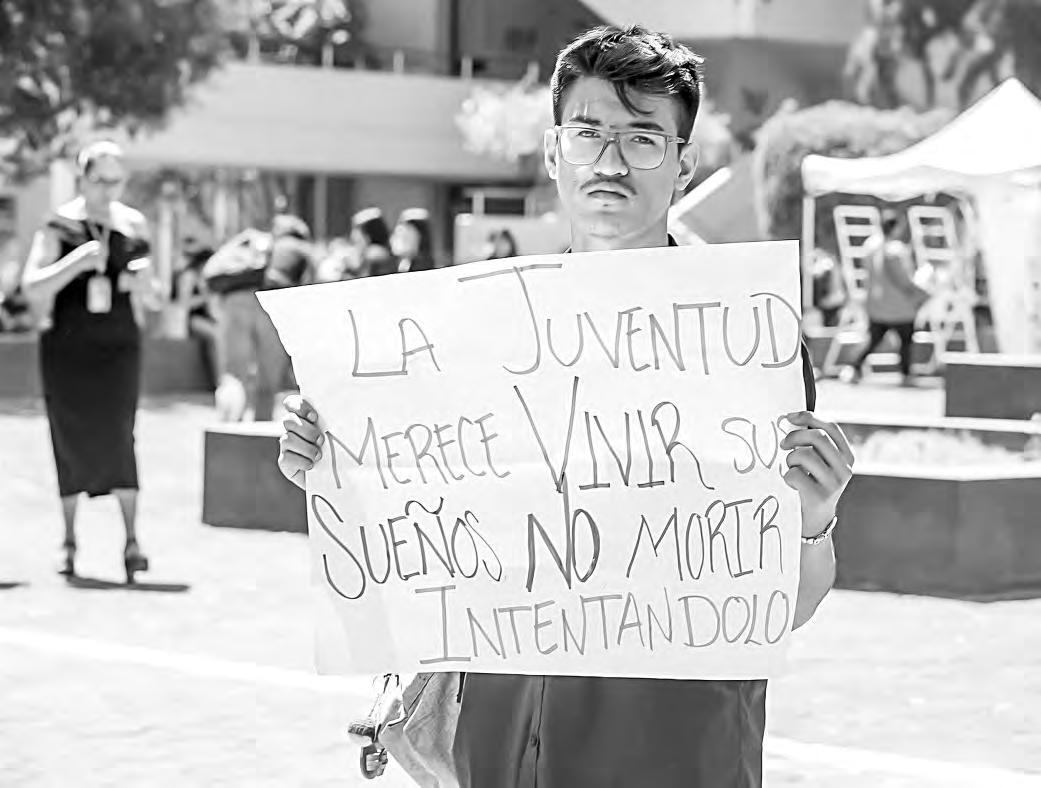 LA JUVENTUD
MERECE VIVIR SUS
SUEÑOS NO MORIR
INTENTANDOLO